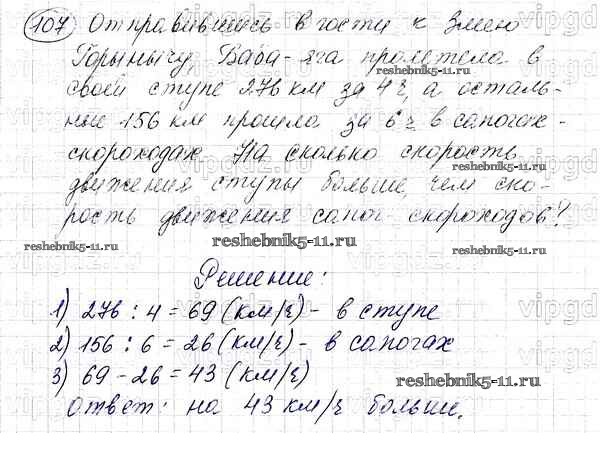 107 Отправившись в гости к Змею
Горынычу, Баба-яга пролетела в
reshebnik5-11.ru
своей ступе 276 км за 4 ч, а осталь-
ные 156 км прошла за 6 ч в сапогах-
скороходах. На сколько скорость
движения ступы больше, чем ско-
рость движения сапог-скороходов?
reshebnik5-11.ru reshebnik5-11.ru reshebnik5-11.ru
Решение:
1) 276 : 4 = 69 (км/ч) - в ступе
2) 156 : 6 = 26 (км/ч) - в сапогах
3) 69 - 26 = 43 (км/ч)
reshebnik5-11.ru
Ответ: на 43 км/ч больше.